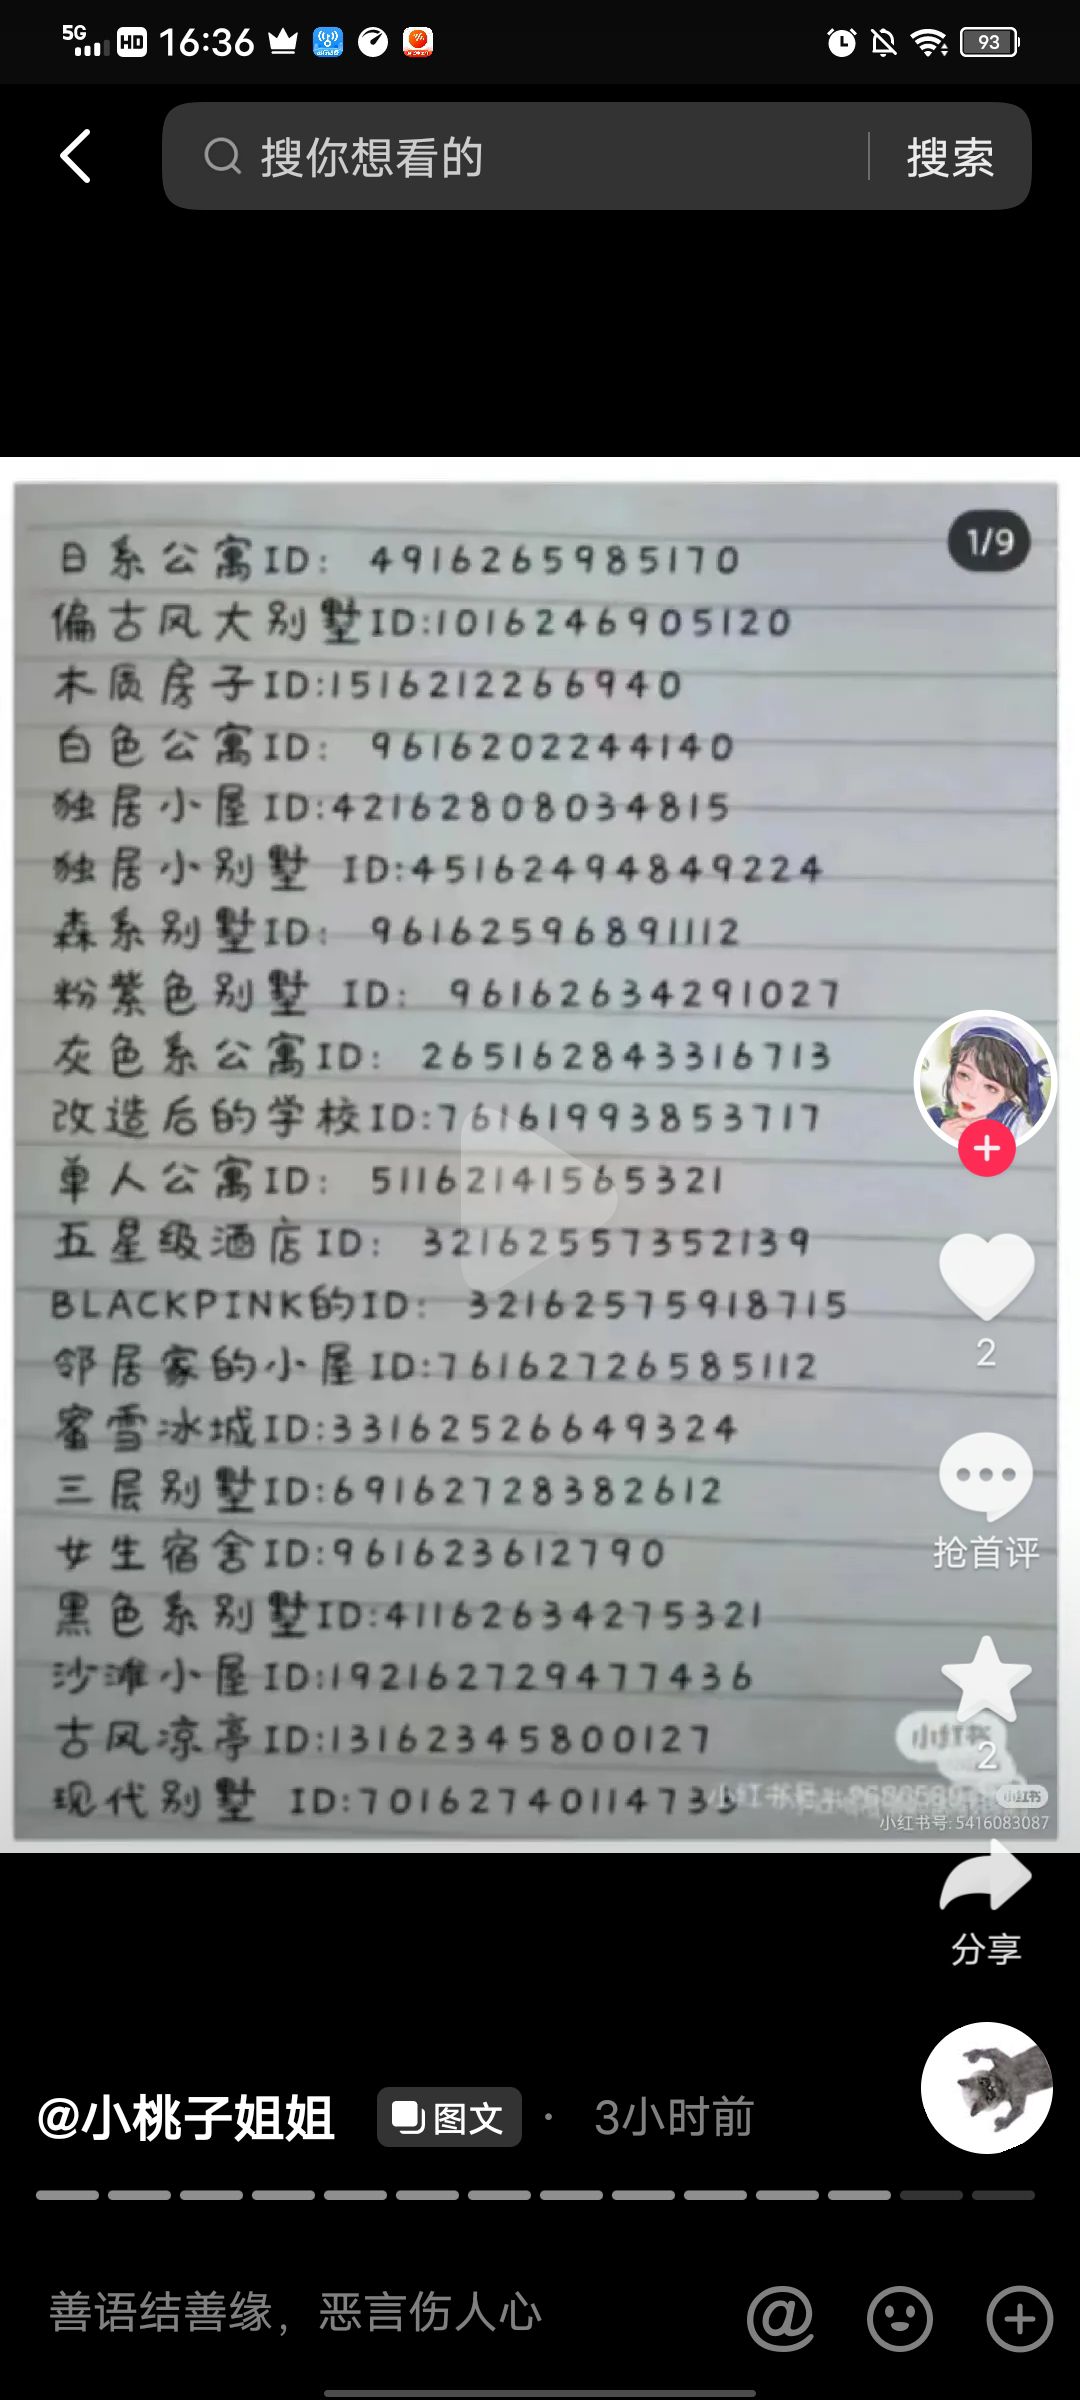 5G HD 16:36 93
搜你想看的 搜索
1/9
日系公寓ID: 4916265985170
偏古风大别墅ID:1016246905120
木质房子ID:1516212266940
白色公寓ID: 9616202244140
独居小屋ID:42162808034815
独居小别墅 ID:45162494849224
森系别墅ID: 96162596891112
粉紫色别墅 ID: 96162634291027
灰色系公寓ID: 265162843316713
改造后的学校ID:76161993853717
单人公寓ID: 51162141565321
五星级酒店ID: 32162557352139
BLACKPINK的ID: 32162575918715
邻居家的小屋ID:76162726585112
蜜雪冰城ID:33162526649324
三层别墅ID:69162728382612
女生宿舍ID:961623612790
黑色系别墅ID:41162634275321
沙滩小屋ID:192162729477436
古风凉亭ID:13162345800127
现代别墅 ID:70162740114733
小红书
小红书
小红书号:5416083087
2
抢首评
2
分享
@小桃子姐姐 图文 · 3小时前
善语结善缘，恶言伤人心